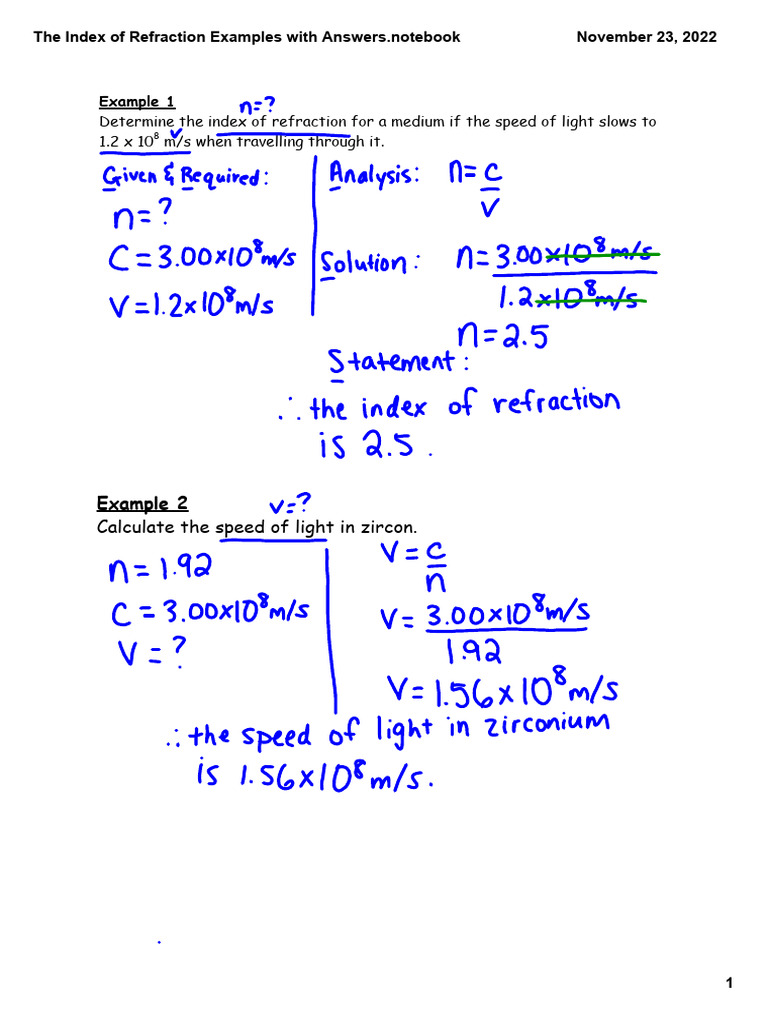 The Index of Refraction Examples with Answers.notebook November 23, 2022
Example 1
n=?
Determine the index of refraction for a medium if the speed of light slows to
v
1.2 x 10⁸ m/s when travelling through it.
Given & Required:
n=?
C=3.00x10⁸m/s
V=1.2x10⁸m/s
Analysis: n=c/v
Solution: n=3.00x10⁸m/s
1.2x10⁸m/s
n=2.5
Statement:
∴ the index of refraction
is 2.5.
Example 2
v=?
Calculate the speed of light in zircon.
n=1.92
C=3.00x10⁸m/s
V=?
V=c/n
V=3.00x10⁸m/s
1.92
V=1.56x10⁸m/s
∴ the speed of light in zirconium
is 1.56x10⁸m/s.
1